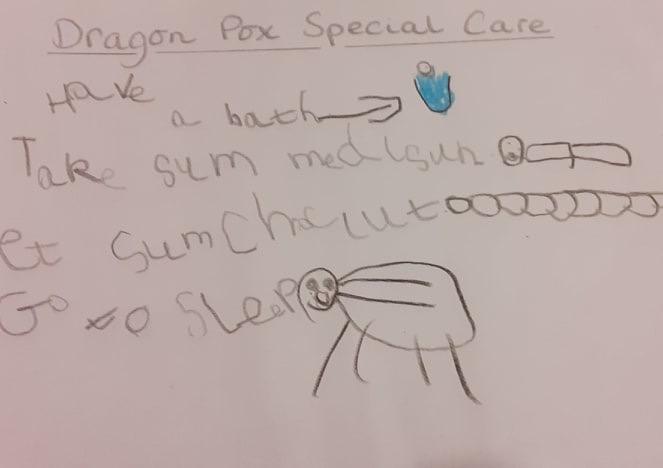 Dragon Pox Special Care
Have
a bath
Take sum medisun
et sum Choclut
Go to Sleep